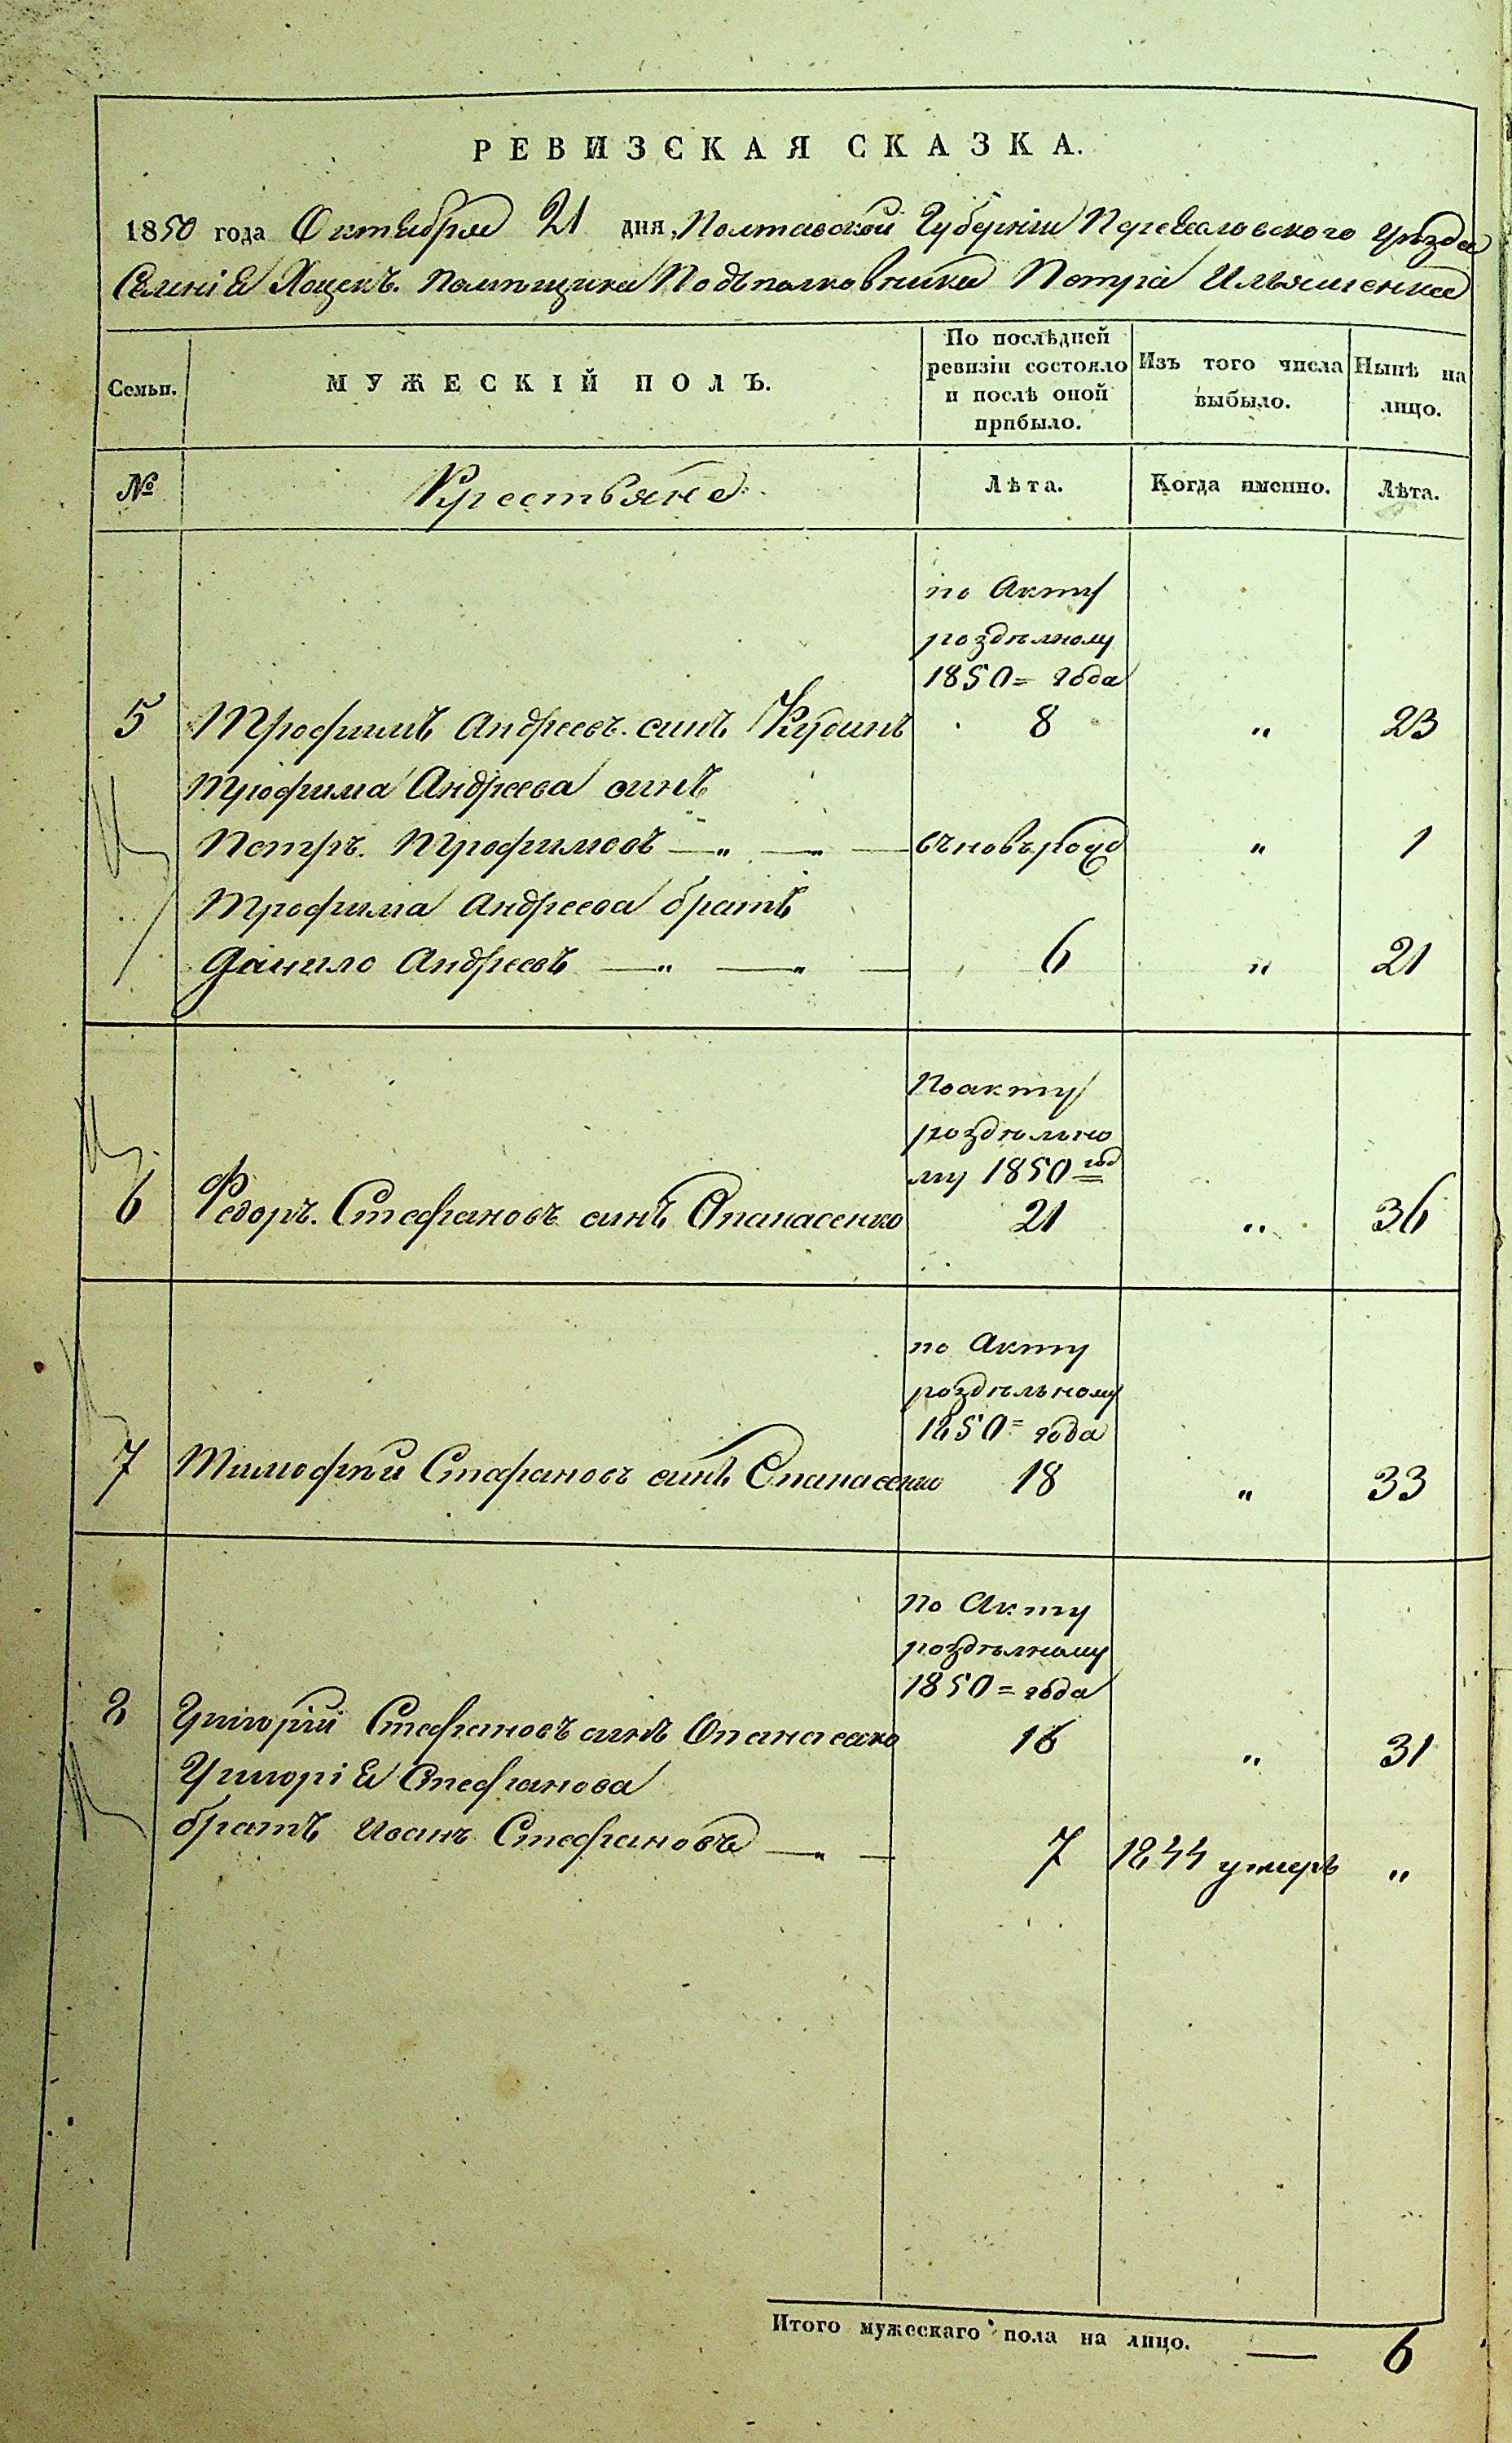 РЕВИЗСКАЯ СКАЗКА.
1850 года Октября 21 дня, Полтавской Губерніи Переяславского уѣзда
Селенія Хоцекъ. Помѣщика Подъполковника Петра Ильяшенка
Семьи.
МУЖЕСКІЙ ПОЛЪ.
По послѣдней
ревизіи состояло
и послѣ оной
прибыло.
Изъ того числа
выбыло.
Нынѣ на
лицо.
№ Крестьяне. Лѣта. Когда именно. Лѣта.
по Акту
роздѣлному
1850= года
5 Трофимъ Андреевъ. синъ Кубинъ 8 „ 23
Трофима Андреева синъ
Петръ. Трофимовъ —„ —„ — въновърожд „ 1
Трофима Андреева братъ
Данило Андреевъ —„ —„ — 6 „ 21
По акту
роздѣльно
му 1850= год
6 Федоръ. Стефановъ синъ Опанасенко 21 „ 36
по Акту
роздѣльному
1850= года
7 Тимофѣй Стефановъ синъ Опанасенко 18 „ 33
По Акту
роздѣлному
1850= года
8 Григорій Стефановъ синъ Опанасенко 16 „ 31
Григорія Стефанова
братъ Иванъ Стефановъ —„ — 7 1844 умеръ „
Итого мужескаго пола на лицо. — 6